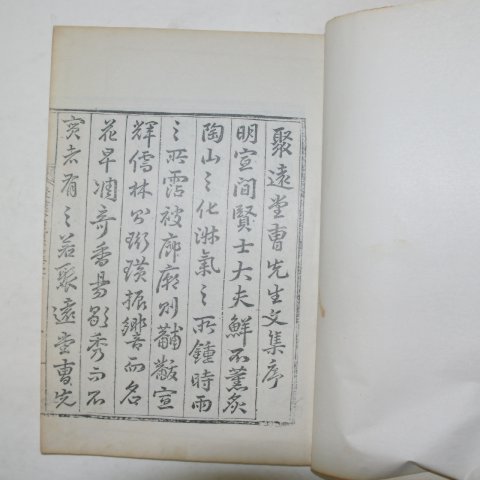 聚遠堂曺先生文集序
明宣間賢士大夫鮮不薰炙
陶山之化淋氣之所鍾時雨
之所霑被廊廟則黼黻宣
輝儒林則珩璜振響而名
花早凋奇香易歇秀而不
實者有之若聚遠堂曺先